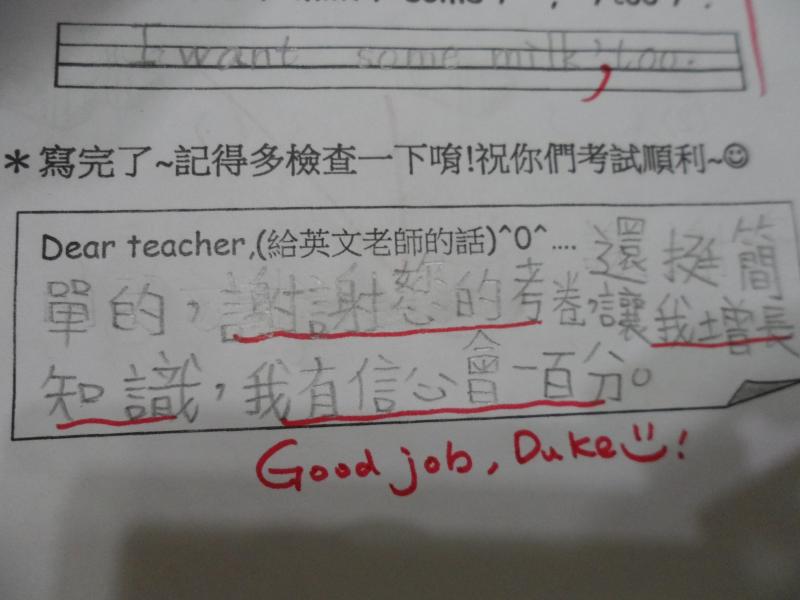 some / , / too / .
I want some milk, too.
＊寫完了~記得多檢查一下唷!祝你們考試順利~☺
Dear teacher,(給英文老師的話)^0^.... 還挺簡
單的，謝謝您的考卷，讓我增長
知識，我有信心會一百分。
Good job, Duke!